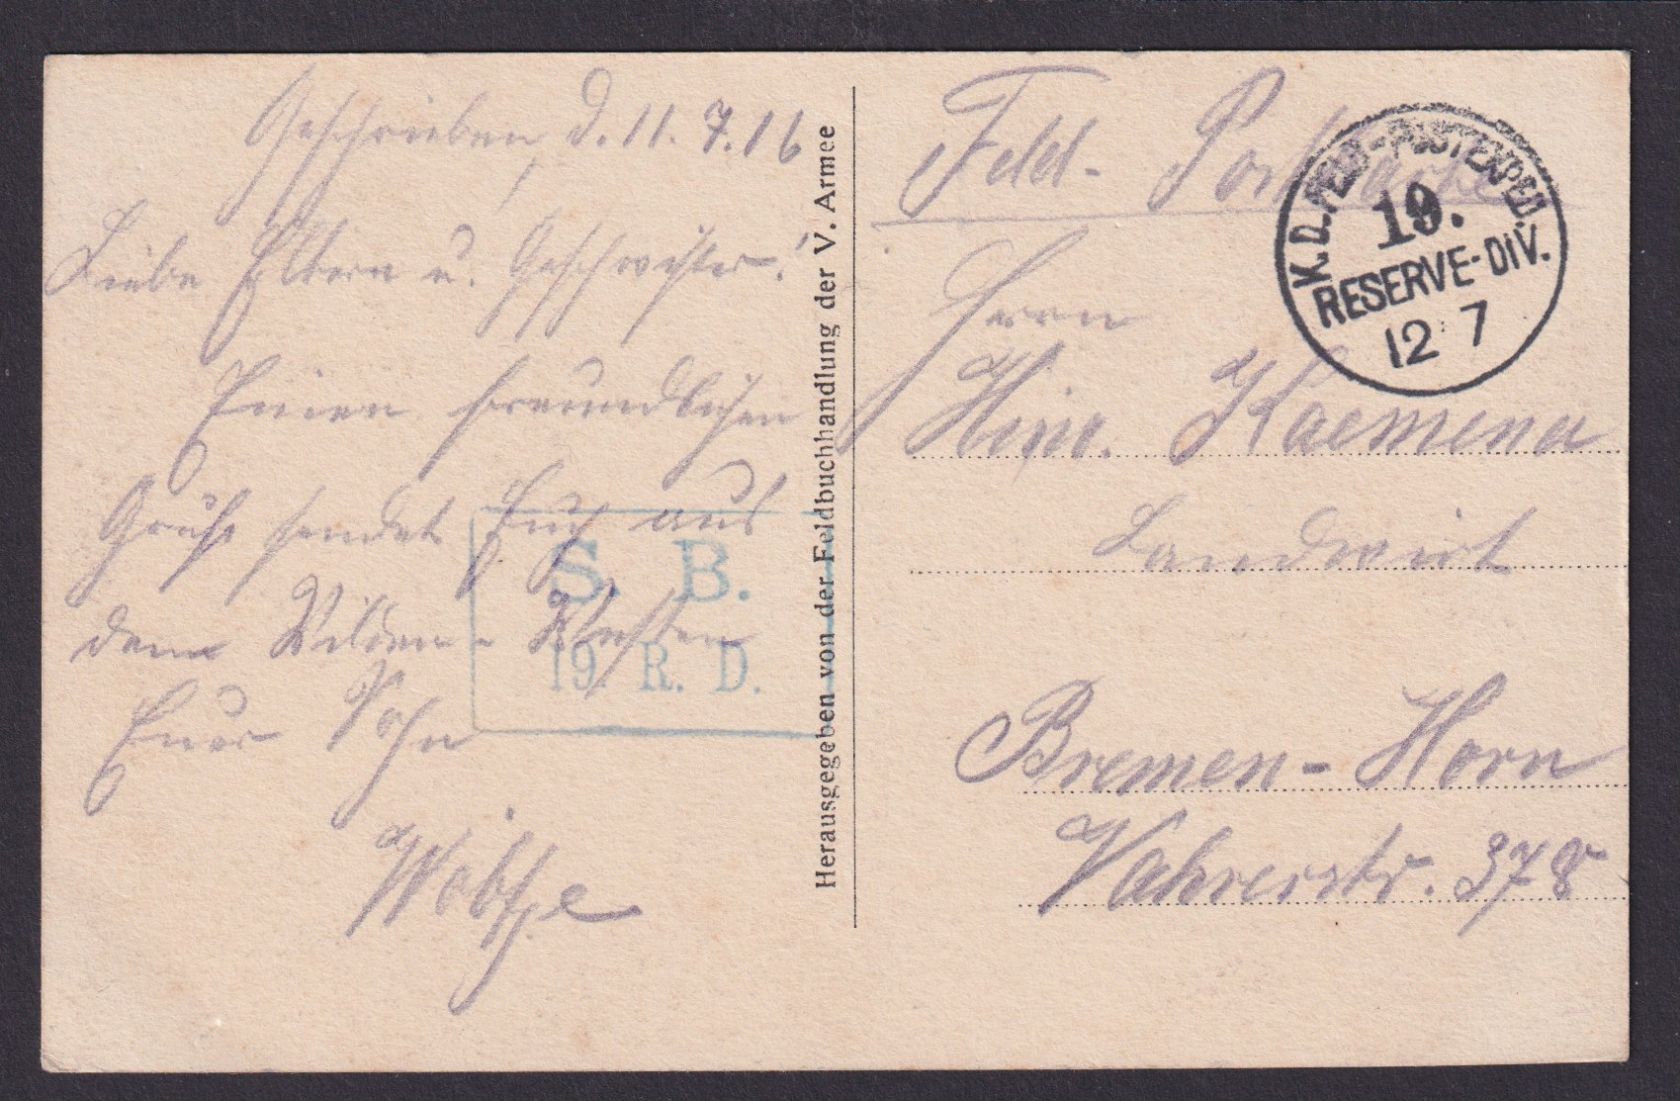 Geschrieben d. 11. 7. 16
Liebe Eltern u. Geschwister!
Einen freundlichen
Gruß sendet Euch aus
dem Wilden-Westen
Euer Sohn
Herausgegeben von der Feldbuchhandlung der V. Armee
S. B.
19. R. D.
Feld-Postkarte
K. D. FELD-POSTEXPED.
19.
RESERVE-DIV.
12 7
Herrn
Hinr. Kaemena
Landwirt
Bremen-Horn
Vahrerstr. 378